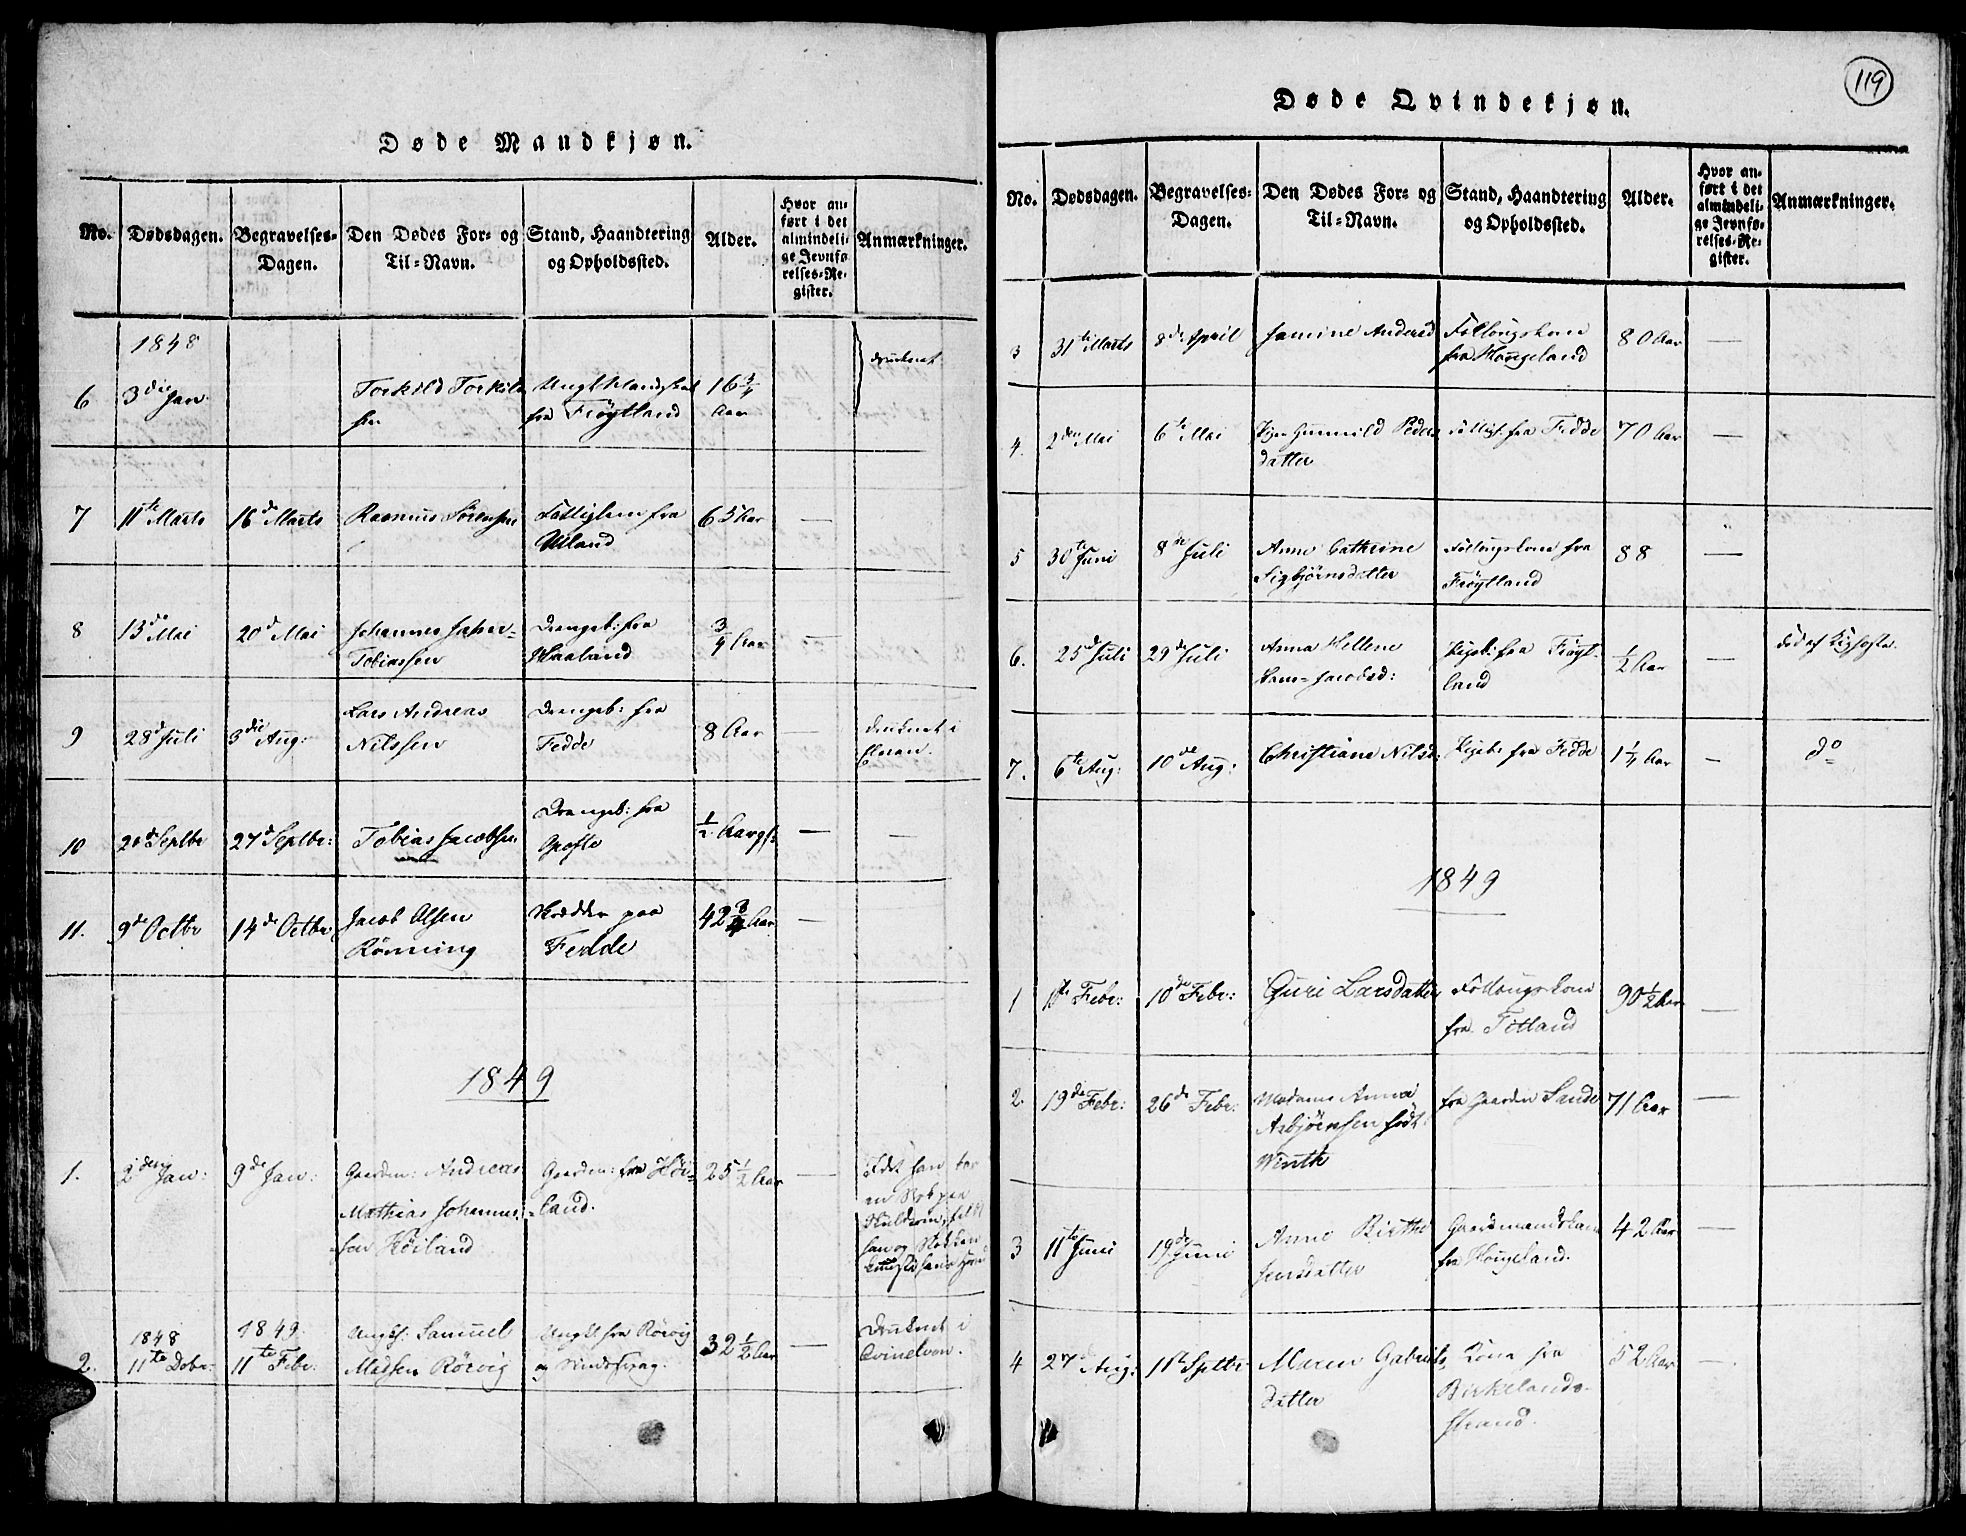 Døde Mandkjøn.
No. Dødsdagen. Begravelses-Dagen. Den Dødes For- og Til-Navn. Stand, Haandtering og Opholdssted. Alder. Hvor anført i det almindelige Jevnførelses-Register. Anmærkninger.
1848
druknet
6 3die Jan. Torkild Torkild- Ungt Mandskab 16 3/4
sen fra Frøytland Aar
7 11te Marts 16de Marts Rasmus Sørensen Fattiglem fra 65 Aar —
Uland
8 13de Mai 20de Mai Johannes Jahn- Drengeb: fra 3/4 Aar —
Tobiassen Haaland
9 28de Juli 3die Aug: Lars Andreas Drengeb: fra 8 Aar — druknet i
Nilssen Fedde Elven.
10 20de Septbr 27de Septbr: Tobias Jacobsen Drengeb: fra 1/2 Aargl: — —
11. 9de Octbr 14de Octbr Jacob Olsen paa 42 3/4 Aar —
Rønning Fedde
1849
1. 2den Jan: 9de Jan: Gaardm: Andreas Gaardm: fra Høi- 25 1/2 Aar —
Mathias Johannes- land.
sen Høiland
han og Stokken
2. 1848 11te Dcbr: 1849 11te Febr: Ungk: Samuel Ungk fra Rørvig 32 1/2 Aar — Druknet i
Madsen Rørvig Qvinelven.
119
Døde Qvindekjøn.
No. Dødsdagen. Begravelses-Dagen. Den Dødes For- og Til-Navn. Stand, Haandtering og Opholdssted. Alder. Hvor anført i det almindelige Jevnførelses-Register. Anmærkninger.
3 31te Marts 8de April Jamine Andersd Føllougskone 80 Aar —
fra Hougeland
4. 2den Mai 6te Mai Gunnild Peders Fattigl: fra Fedde 70 Aar —
datter
5 30te Juni 8de Juli Anne Cathrine Føllougskone fra 88 —
Sigbjørnsdatter Frøytland
6. 25de Juli 29de Juli Anna Hellene Pigeb: fra Frøyt- 1/2 Aar — død af Kighoste.
land
7. 6te Aug: 10de Aug: Christiane Nilsd: Pigebr fra Fedde 1 1/4 Aar — do
1849
1 1te Febr: 10de Febr: Guri Larsdatter Føllougskone 90 1/2 Aar —
fra Titland
2. 19de Febr: 26de Febr: Madame Anna fra Gaarden Sande 71 Aar —
Asbjørnsen født
Winth
3 11te Juni 19de Juni Anne Birthe Gaardmandskone 42 Aar —
Jensdatter fra Hougeland.
4 27de Aug: 11te Sptbr Maren Gabriels Kone fra 52 Aar —
datter Birkelands-
strand.